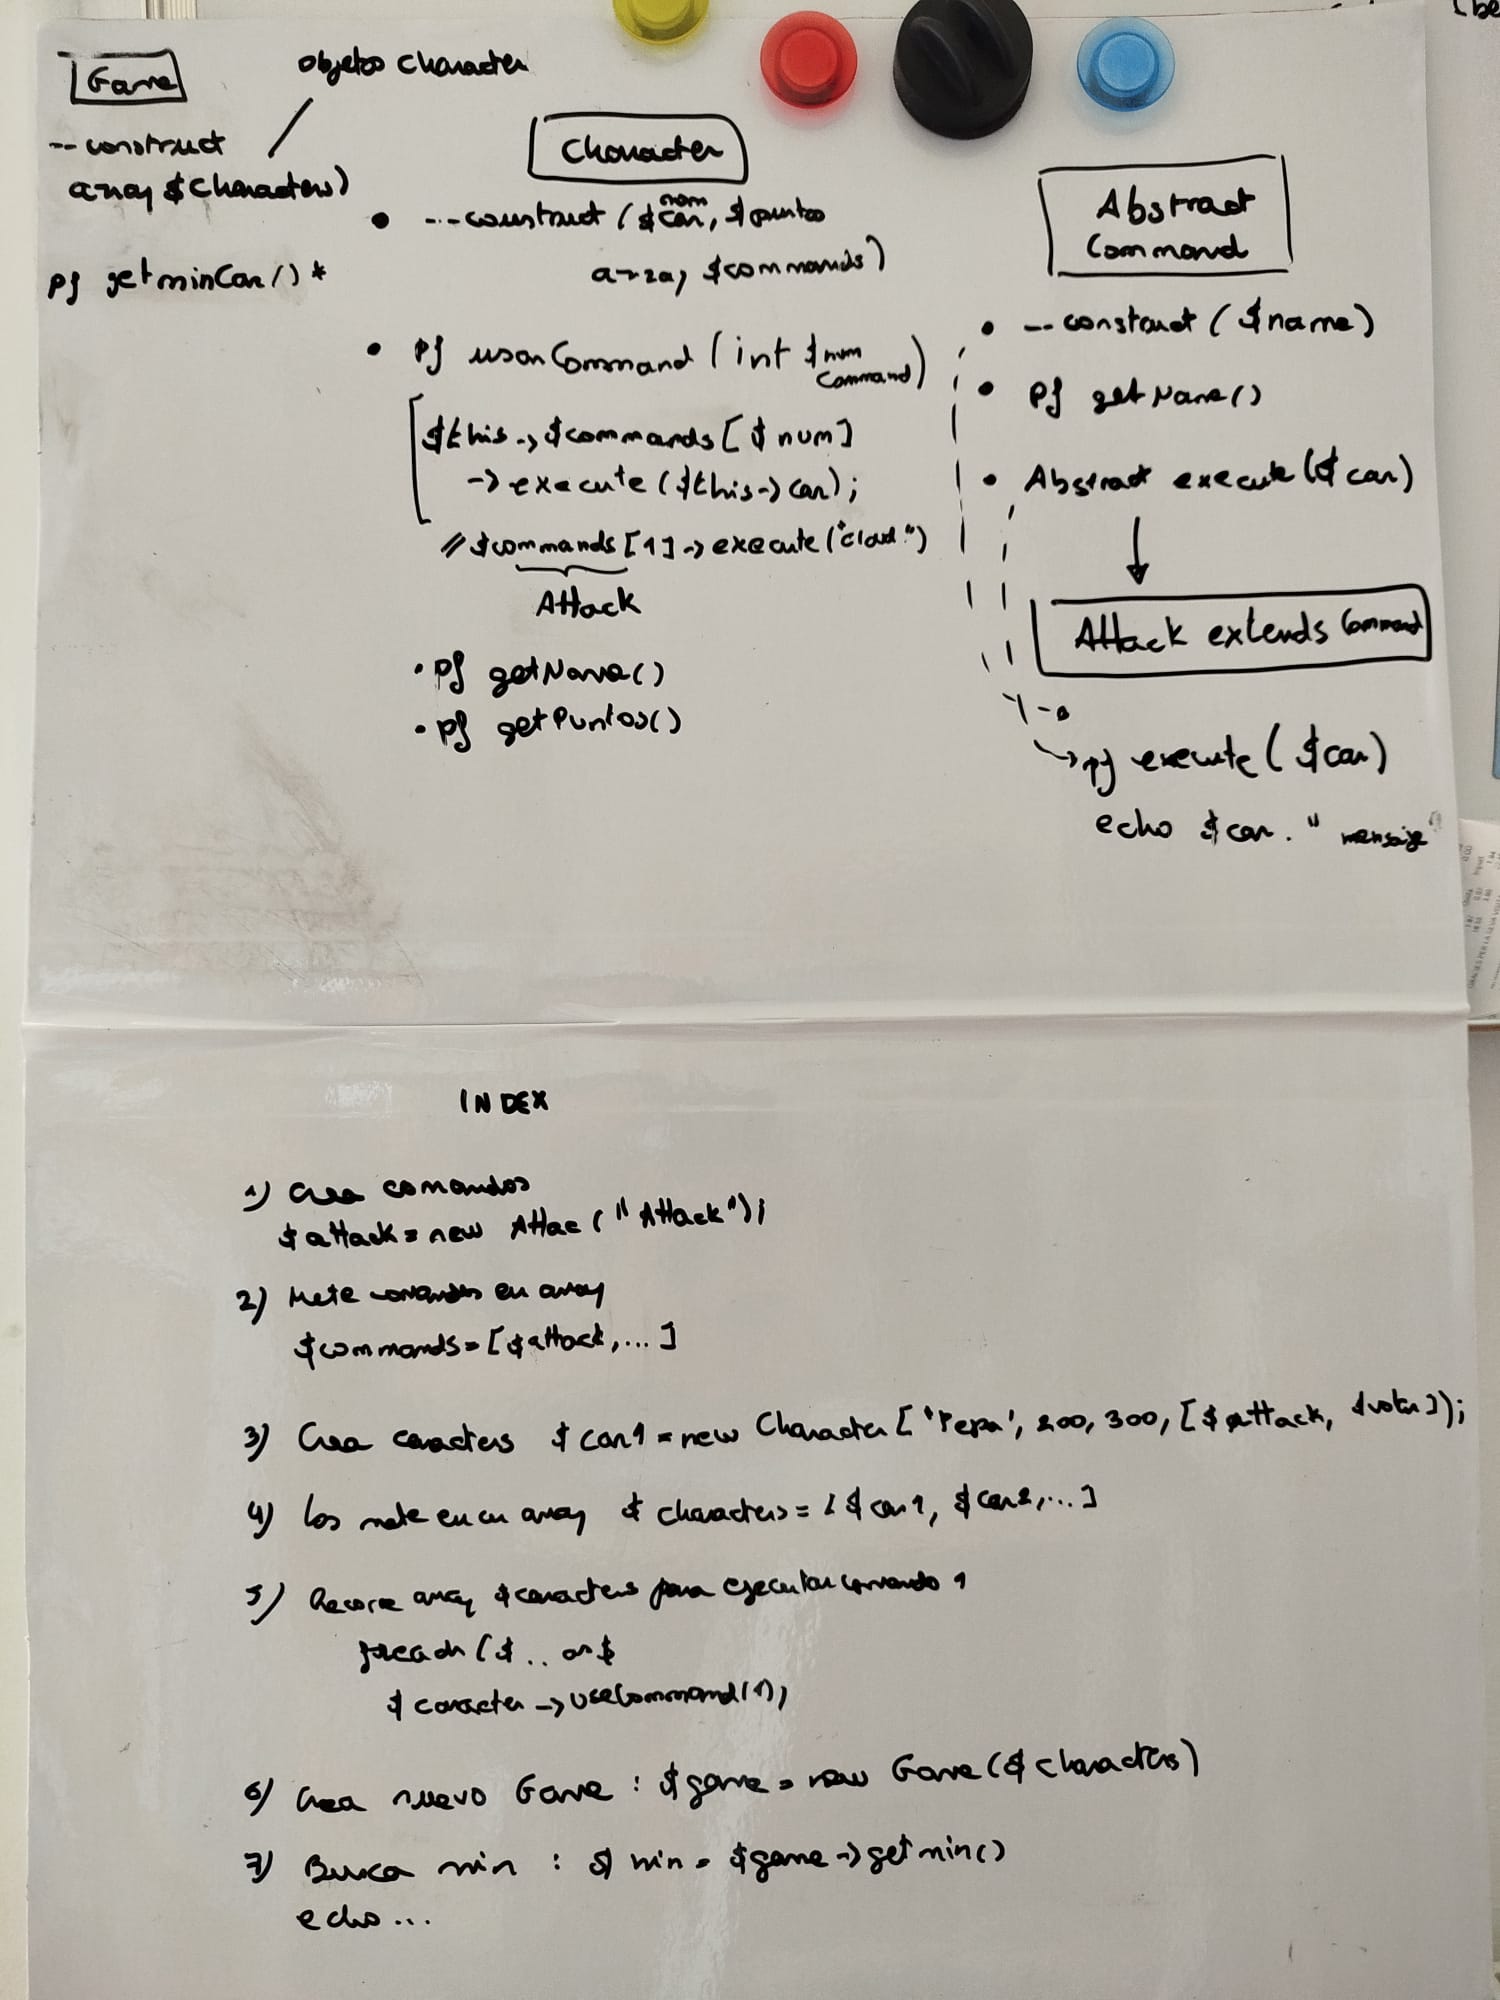 Game
objetos Character
-- construct
array $Characters)
pf getminCar() *
Character
-- construct ($car, $puntos
nom
array $commands)
pf usarCommand (int $num
Command)
$this -> $commands [$num]
-> execute ($this -> car);
// $commands [1] -> execute ("cloud")
Attack
pf getName()
pf getPuntos()
Abstract
Command
-- construct ($name)
pf getName()
Abstract execute ($car)
Attack extends Command
pf execute ($car)
echo $car . " mensaje"
INDEX
1) Crea comandos
$attack = new Attac ("Attack");
2) Mete comandos en array
$commands = [$attack, ... ]
3) Crea caracters $car1 = new Character ['Pepa', 200, 300, [$attack, $volar]);
4) Los mete en un array $characters = [$car1, $car2, ... ]
5) Recorre array $caracters para ejecutar comando 1
foreach ($ .. as $
$caracter -> useCommand(1);
6) Crea nuevo Game : $game = new Game ($characters)
7) Busca min : $min = $game -> getmin()
echo ...
GRACIES PER LA SEVA VISITA